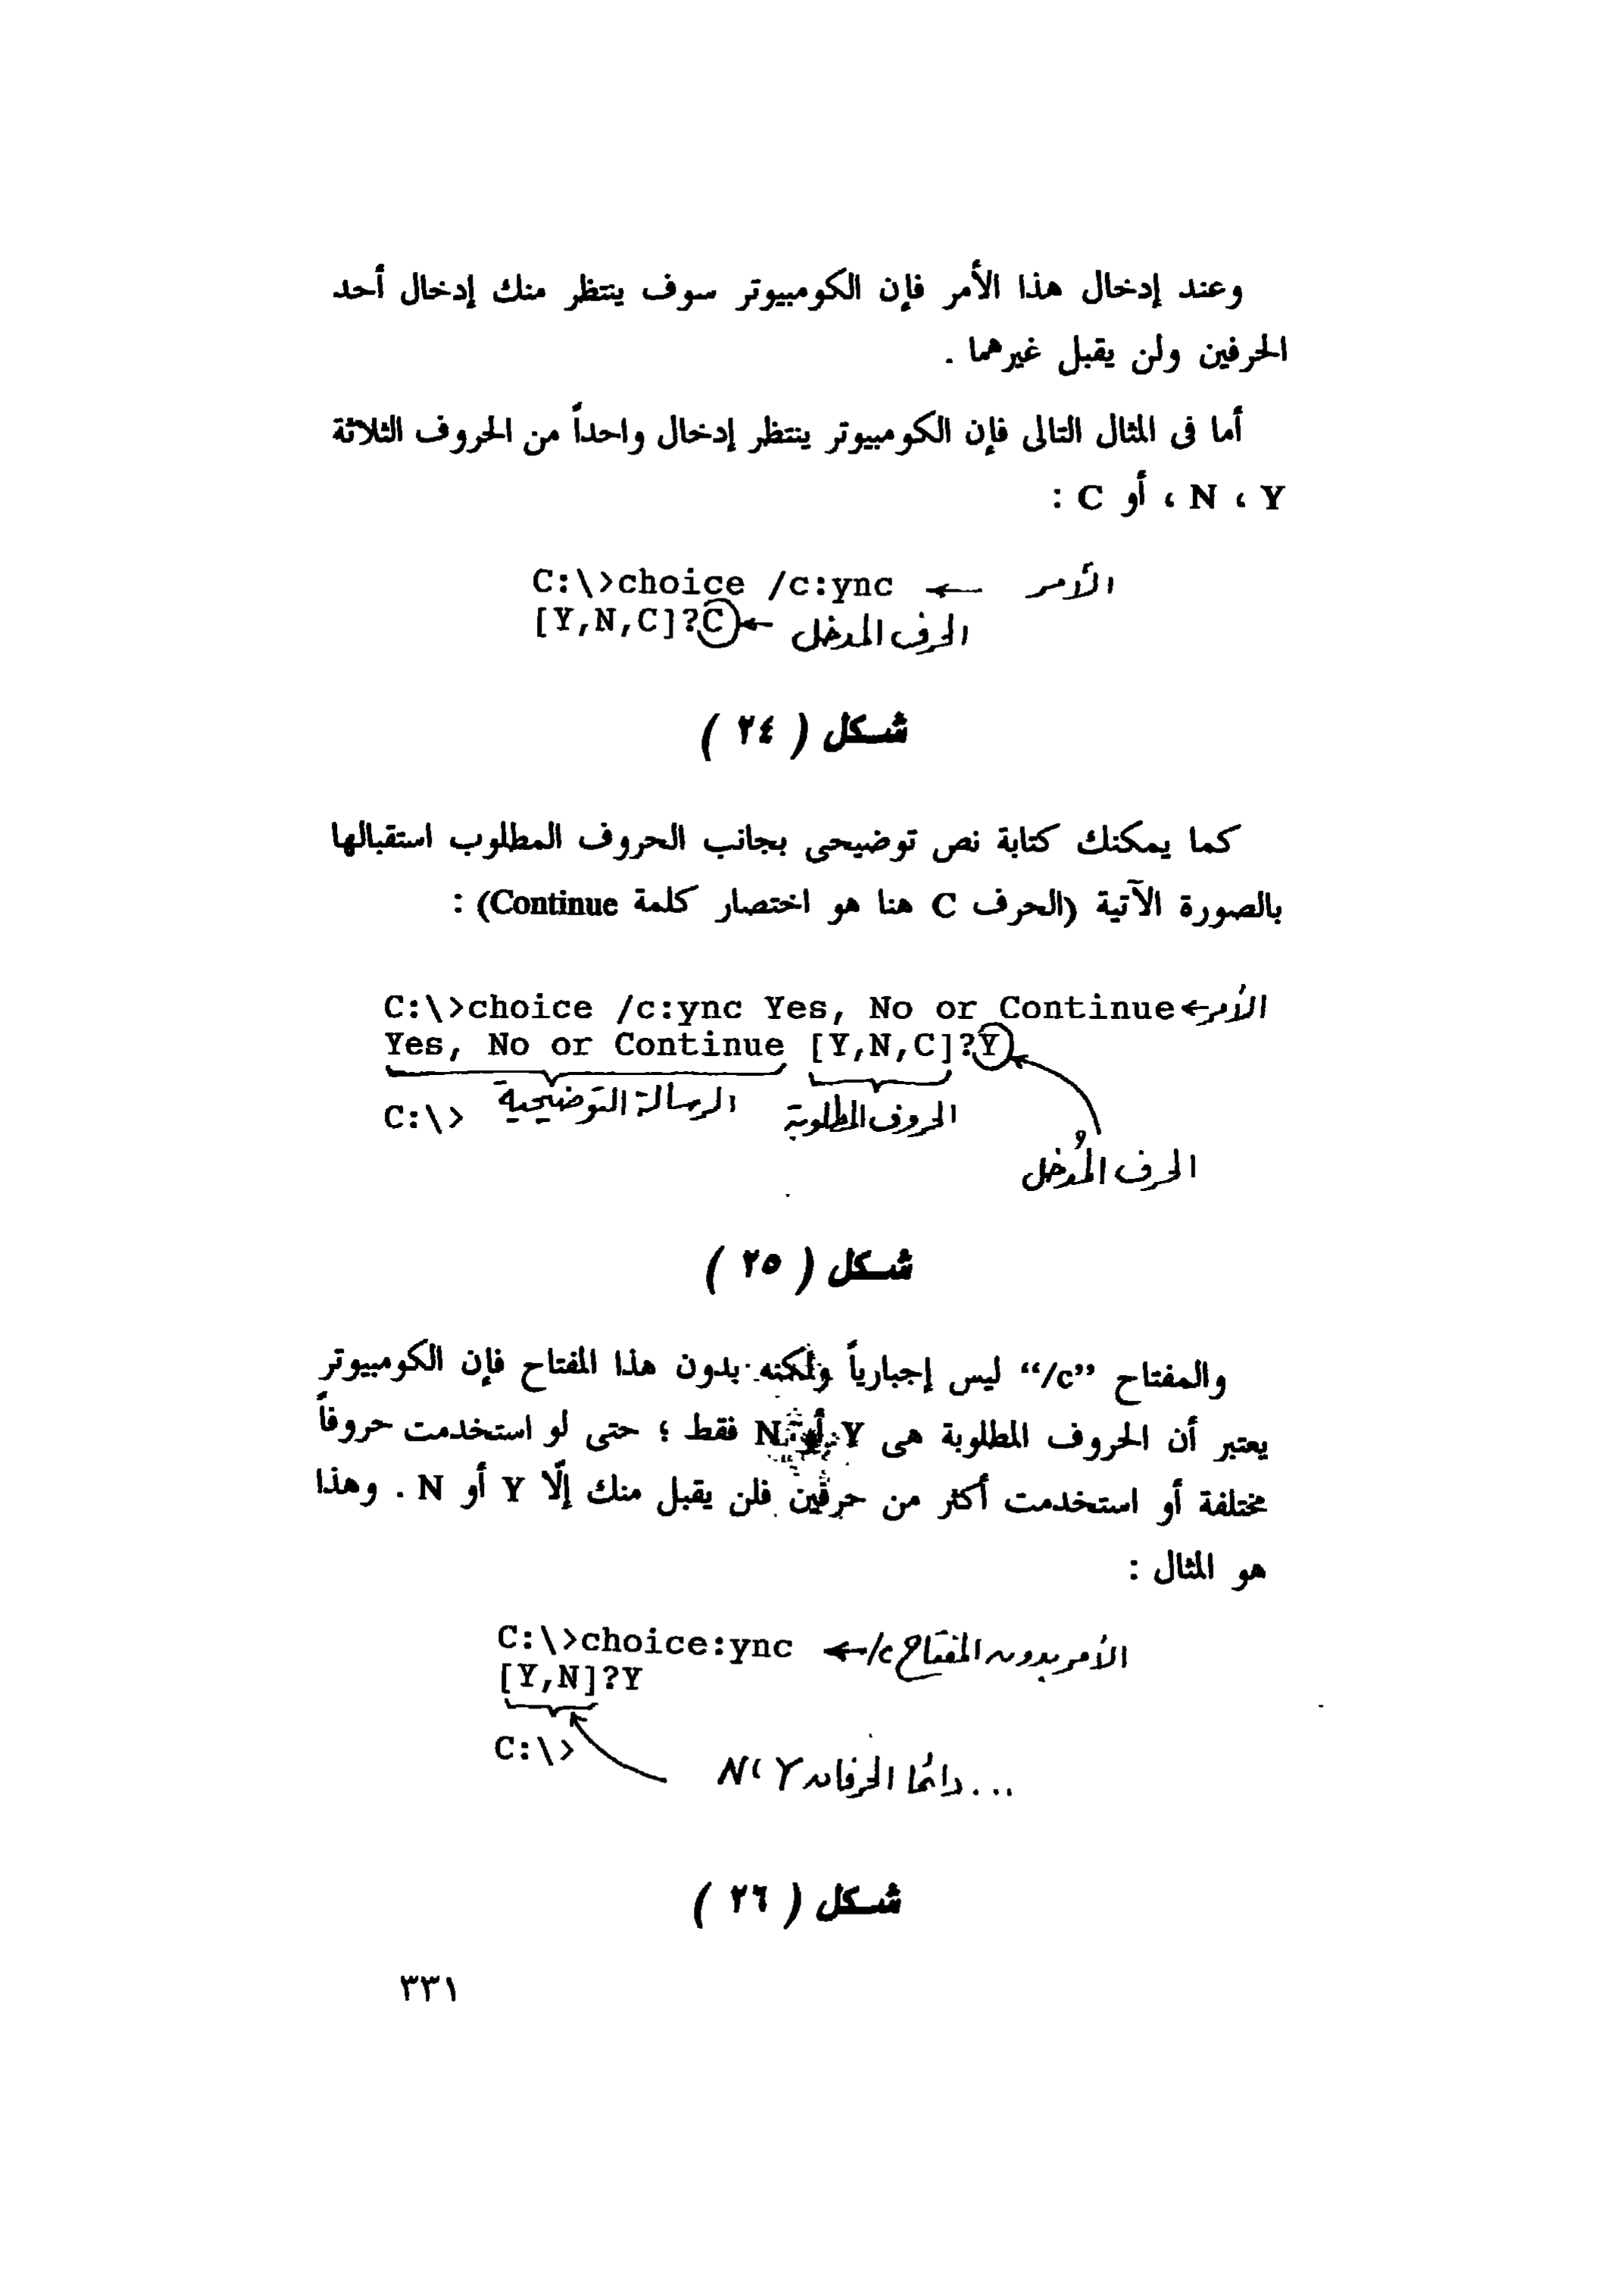 وعند إدخال هذا الأمر فإن الكومبيوتر سوف ينتظر منك إدخال أحد
الحرفين ولن يقبل غيرهما .
أما فى المثال التالى فإن الكومبيوتر ينتظر إدخال واحداً من الحروف الثلاثة
Y ، N ، أو C :
C:\>choice /c:ync ← الأمر
[Y,N,C]?C ← الحرف المدخل
شكل ( ٢٤ )
كما يمكنك كتابة نص توضيحى بجانب الحروف المطلوب استقبالها
بالصورة الآتية (الحرف C هنا هو اختصار كلمة Continue) :
C:\>choice /c:ync Yes, No or Continue ← الأمر
Yes, No or Continue [Y,N,C]?Y
الرسالة التوضيحية
الحروف المطلوبة
C:\>
الحرف المُدخل
شكل ( ٢٥ )
والمفتاح “/c” ليس إجبارياً ولكنه بدون هذا المفتاح فإن الكومبيوتر
يعتبر أن الحروف المطلوبة هى Y أو N فقط ؛ حتى لو استخدمت حروفاً
مختلفة أو استخدمت أكثر من حرفين فلن يقبل منك إلّا Y أو N . وهذا
هو المثال :
C:\>choice:ync ← الأمر بدون المفتاح /c
[Y,N]?Y
C:\>
... دائمًا الحرفان Y ، N
شكل ( ٢٦ )
٣٣١